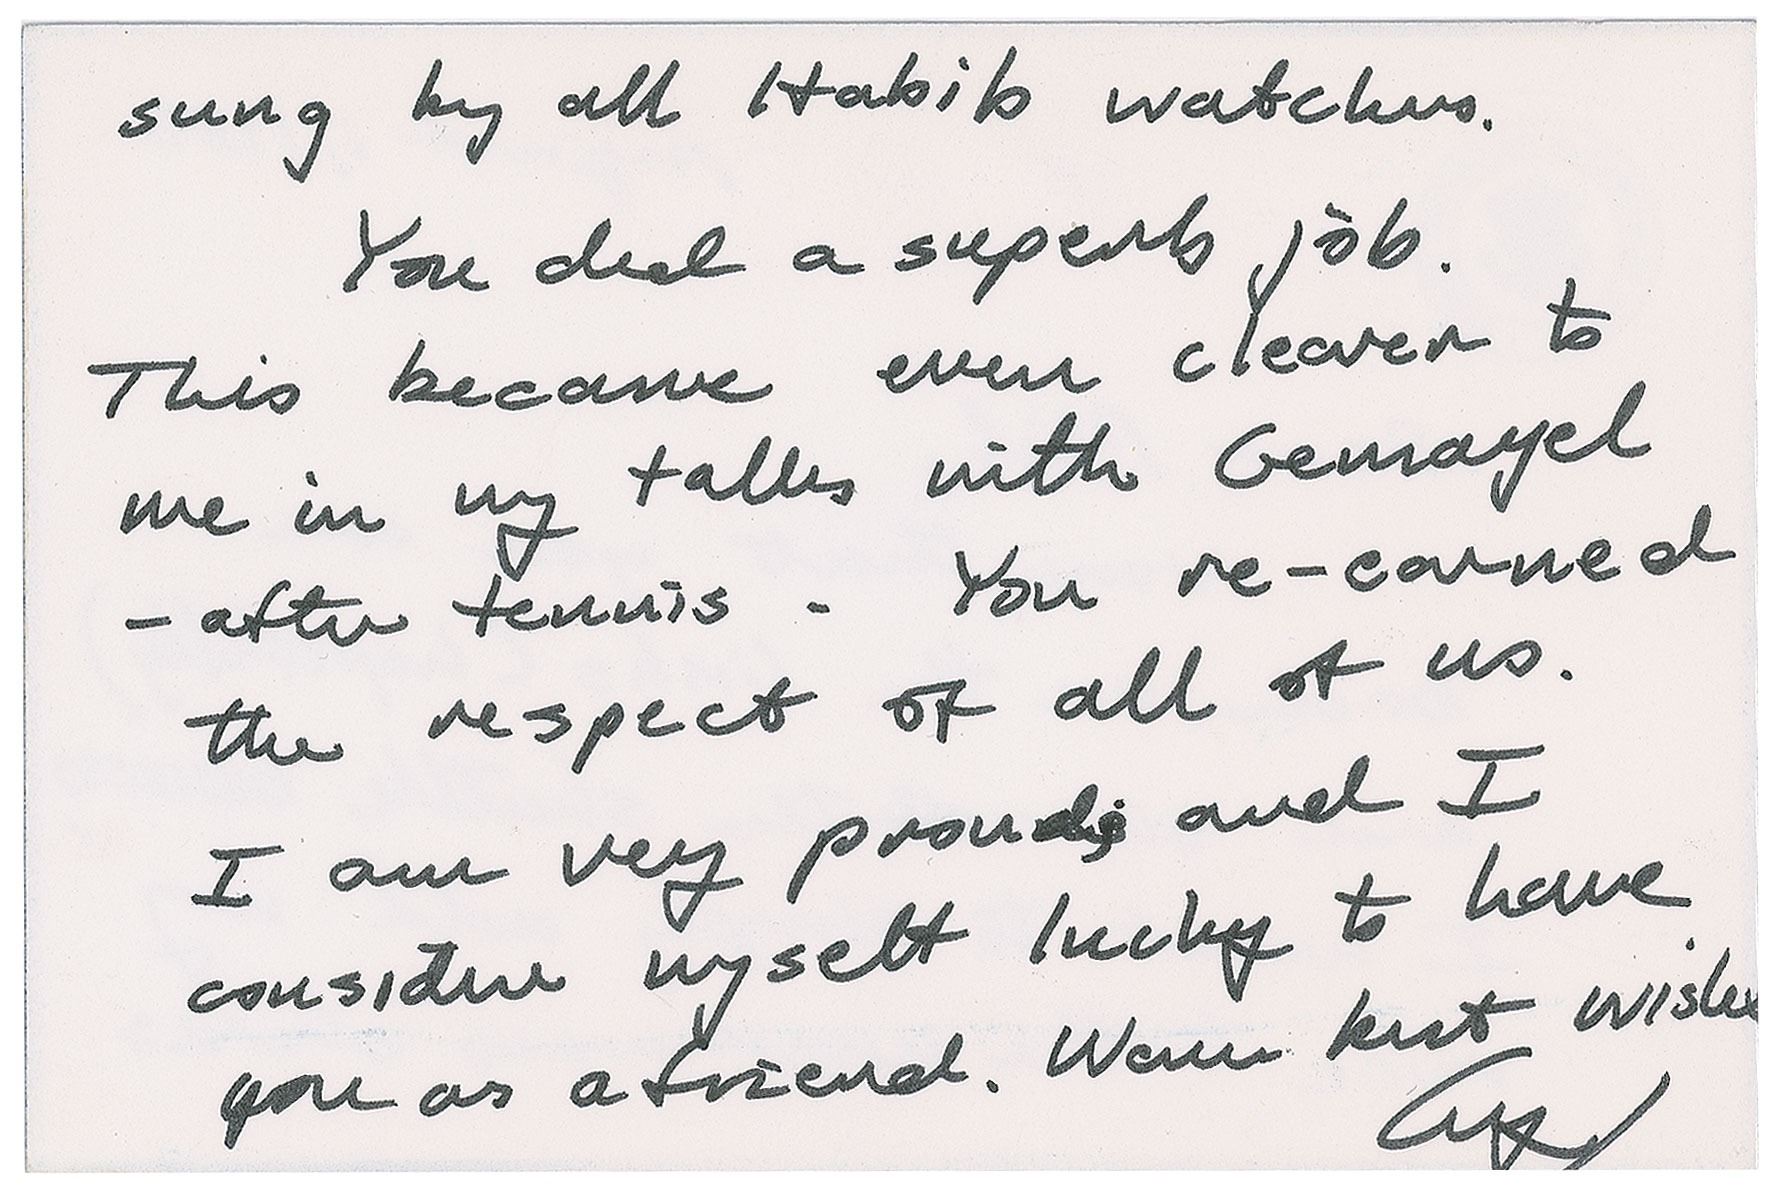 sung by all Habib watchers.
You did a superb job.
This became even clearer to
me in my talks with Gemayel
- after tennis - You re-earned
the respect of all of us.
I am very proud; and I
consider myself lucky to have
you as a friend. Warm best wishes